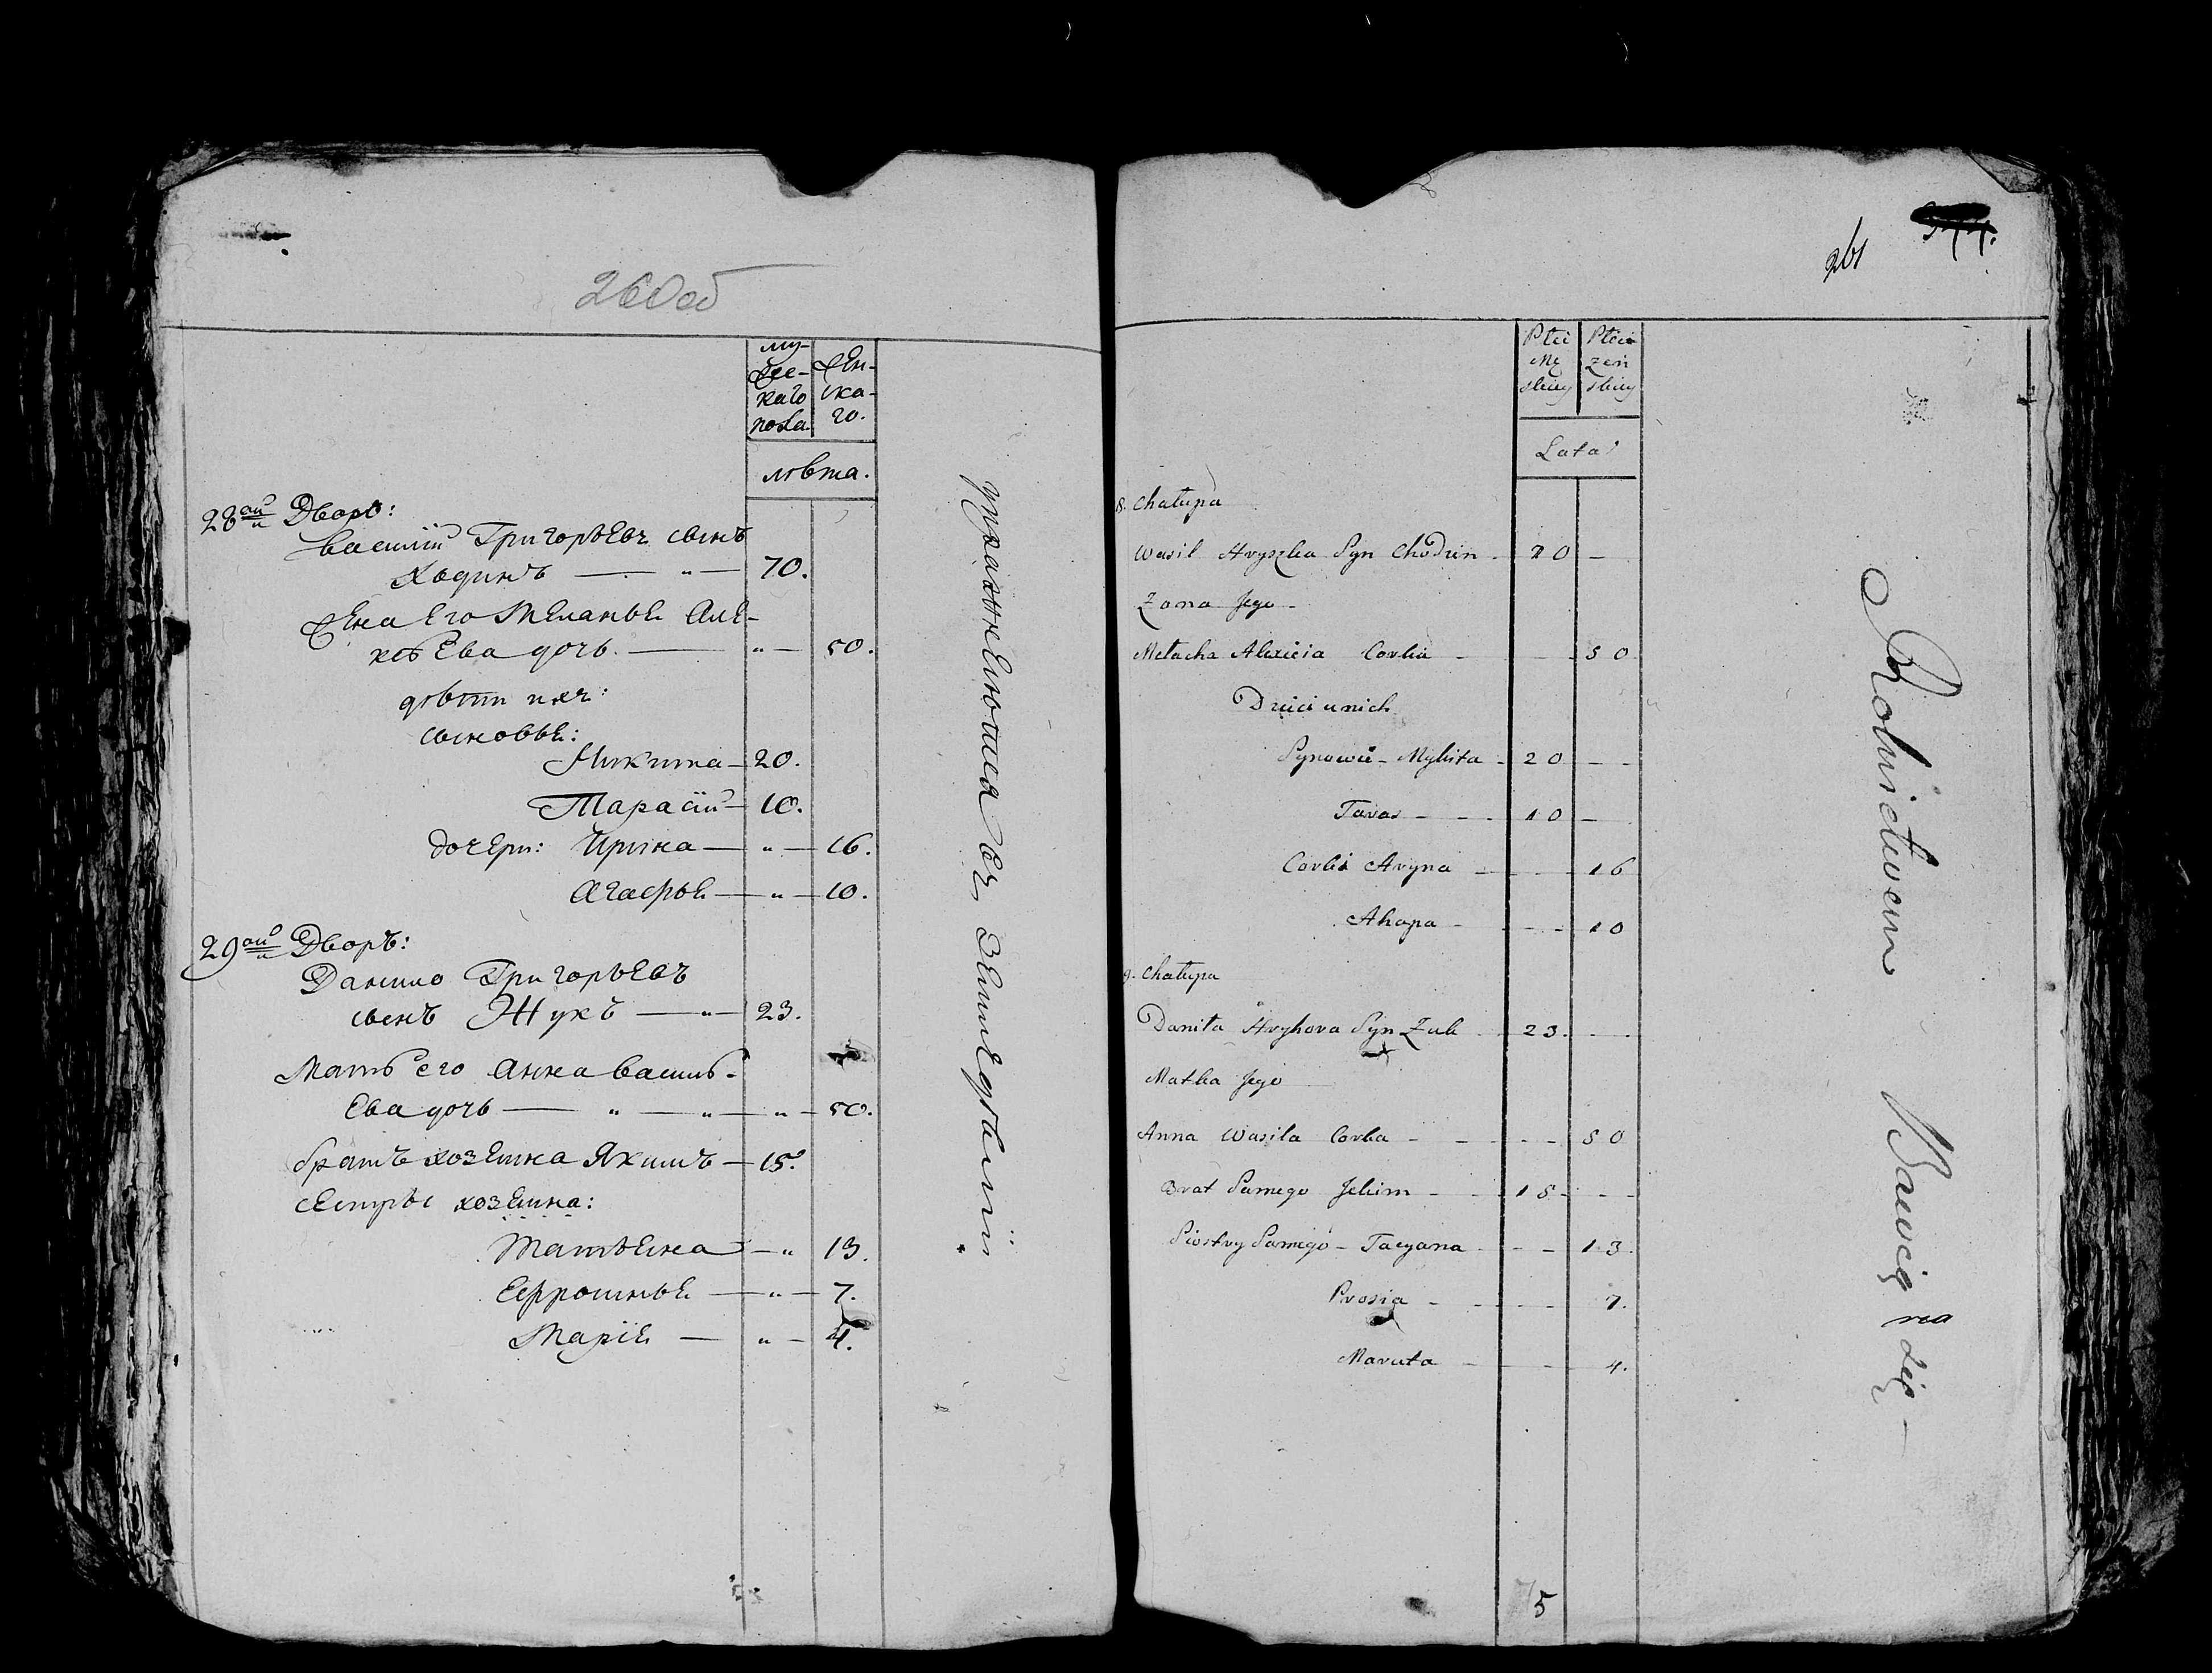 260об
му-
жес-
каго
пола.
жен-
ска-
го.
лѣта.
28ой Дворъ:
Василій Григорьевъ сынъ
Ходинъ — " — 70.
Жена его Меланья Але-
ксѣева дочь. — " — 50.
дѣти ихъ:
сыновья:
Никита — 20.
Тарасій — 10.
дочери: Ирина — " — 16.
Агафья — " — 10.
29ой Дворъ:
Данило Григорьевъ
сынъ Жукъ — " — 23.
Мать его Анна Василь-
ева дочь — " — " — " — 50.
братъ хозяина Якимъ — 15.
сестры хозяина:
Татьяна — " 13.
Ефросинья — " — 7.
Марія — " — 4.
упражняются въ земледѣліи.
261
Płci
mę
skiey
Płci
żeń
skiey
Lata
8. Chałupa
Wasil Hryszka Syn Chodzin - 70 —
Żona Jego -
Mełacha Alexieia Corka - - - 50
Dzieci u nich
Synowie - Mykita - 20 - -
Taras - - - 10 —
Corki Aryna - - - 16
Ahapa - - - - 10
9. Chałupa
Daniła Hryhora Syn Żuk - 23. - -
Matka Jego
Anna Wasila Corka - - - - 50
Brat Samego Jekim - - 15 - - -
Siostry Samego - Tacyana - - - 13.
Prosia - - - - - 7.
Maruta - - 4.
Rolnictwem Bawią się -
5